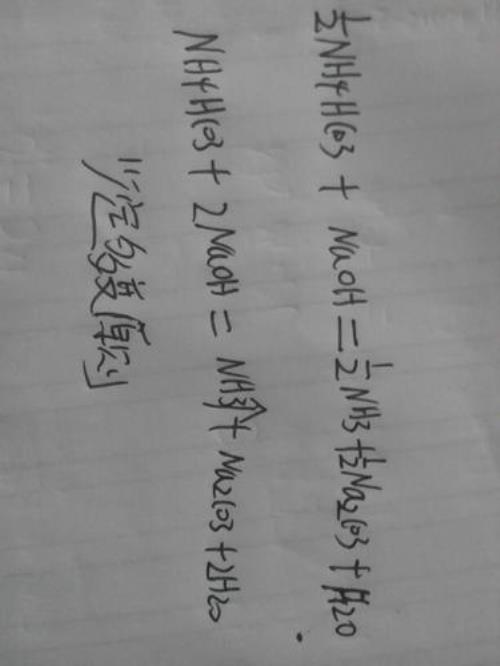 ½NH4HCO3 + NaOH = ½NH3 + ½Na2CO3 + H2O
NH4HCO3 + 2NaOH = NH3↑ + Na2CO3 + 2H2O
"定多变原则"